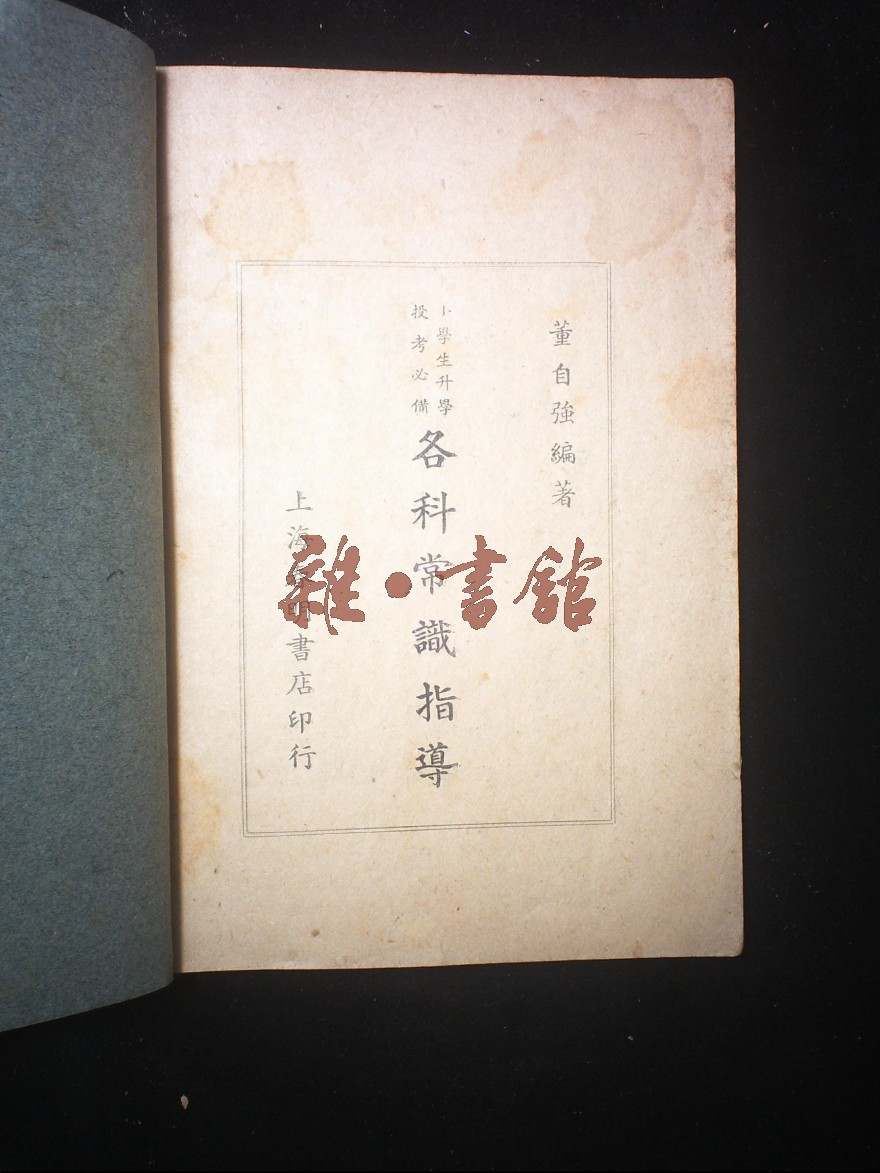 董自強編著
學生升學
投考必備
各科常識指導
上海明書店印行
雜·書館